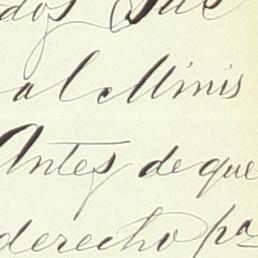 dos Sus
al Minis
Antes de que
derecho pa